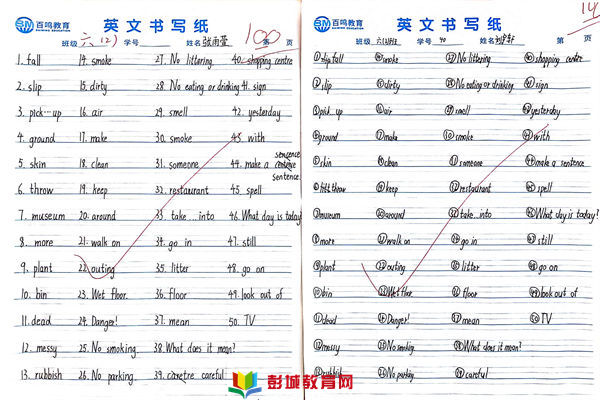 百鸣教育
英文书写纸
班级 六(2) 学号 姓名 张雨萱 第 页
100
1. fall 14. smoke 27. No littering 40. shopping centre
2. slip 15. dirty 28. No eating or drinking 41. sign
3. pick…up 16. air 29. smell 42. yesterday
4. ground 17. make 30. smoke 43. with
5. skin 18. clean 31. someone 44. make a sentence
6. throw 19. keep 32. restaurant 45. spell
7. museum 20. around 33. take…into 46. What day is today?
8. more 21. walk on 34. go in 47. still
9. plant 22. outing 35. litter 48. go on
10. bin 23. Wet floor. 36. floor 49. look out of
11. dead 24. Danger! 37. mean 50. TV
12. messy 25. No smoking 38. What does it mean?
13. rubbish 26. No parking 39. careful
百鸣教育
英文书写纸
班级 学号 40 姓名 第 页
①fall ⑭smoke ㉗No littering ㊵shopping centre
②slip ⑮dirty ㉘No eating or drinking ㊶sign
③pick up ⑯air ㉙smell ㊷yesterday
④ground ⑰make ㉚smoke ㊸with
⑤skin ⑱clean ㉛someone ㊹make a sentence
⑥throw ⑲keep ㉜restaurant ㊺spell
⑦museum ⑳around ㉝take…into ㊻What day is today?
⑧more ㉑walk on ㉞go in ㊼still
⑨plant ㉒outing ㉟litter ㊽go on
⑩bin ㉓Wet floor ㊱floor ㊾look out of
⑪dead ㉔Danger! ㊲mean ㊿TV
⑫messy ㉕No smoking ㊳What does it mean?
⑬rubbish ㉖No parking ㊴careful
彭城教育网